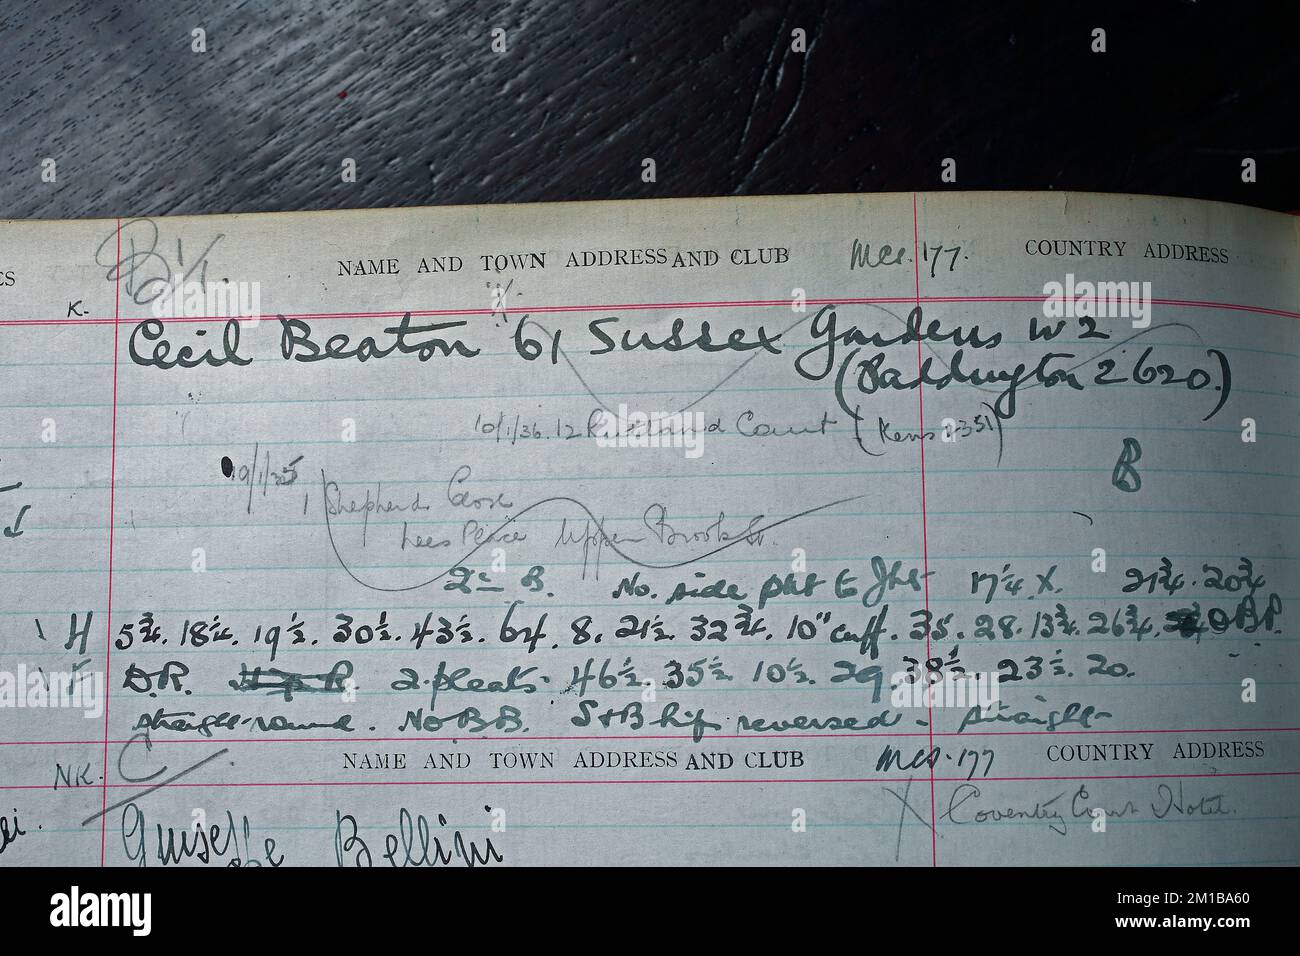 ES
NAME AND TOWN ADDRESS AND CLUB
Mes. 177.
COUNTRY ADDRESS
K.
Cecil Beaton 61 Sussex Gardens W2
(Paddington 2620.)
10/1/36. 12 Rutland Court (Kens 2351)
B
19/1/35 1 Shepherds Close
Lees Place Upper Brook St.
B. No. side pkt to Jkt 17¼ X. 21¾. 20¾
H 5¾. 18¼. 19½. 30½. 43½. 64. 8. 21½. 32¾. 10" cuff. 35. 28. 13¾. 26¾. BP.
F D.R. R. 2 pleats 46½. 35½. 10½. 29. 38½. 23½. 20.
straight round. No BB. S+B hip reversed - straight
NK. C
NAME AND TOWN ADDRESS AND CLUB
Mes. 177
COUNTRY ADDRESS
X Coventry Court Hotel.
ei.
Giuseppe Bellini
alamy
Image ID: 2M1BA60
www.alamy.com